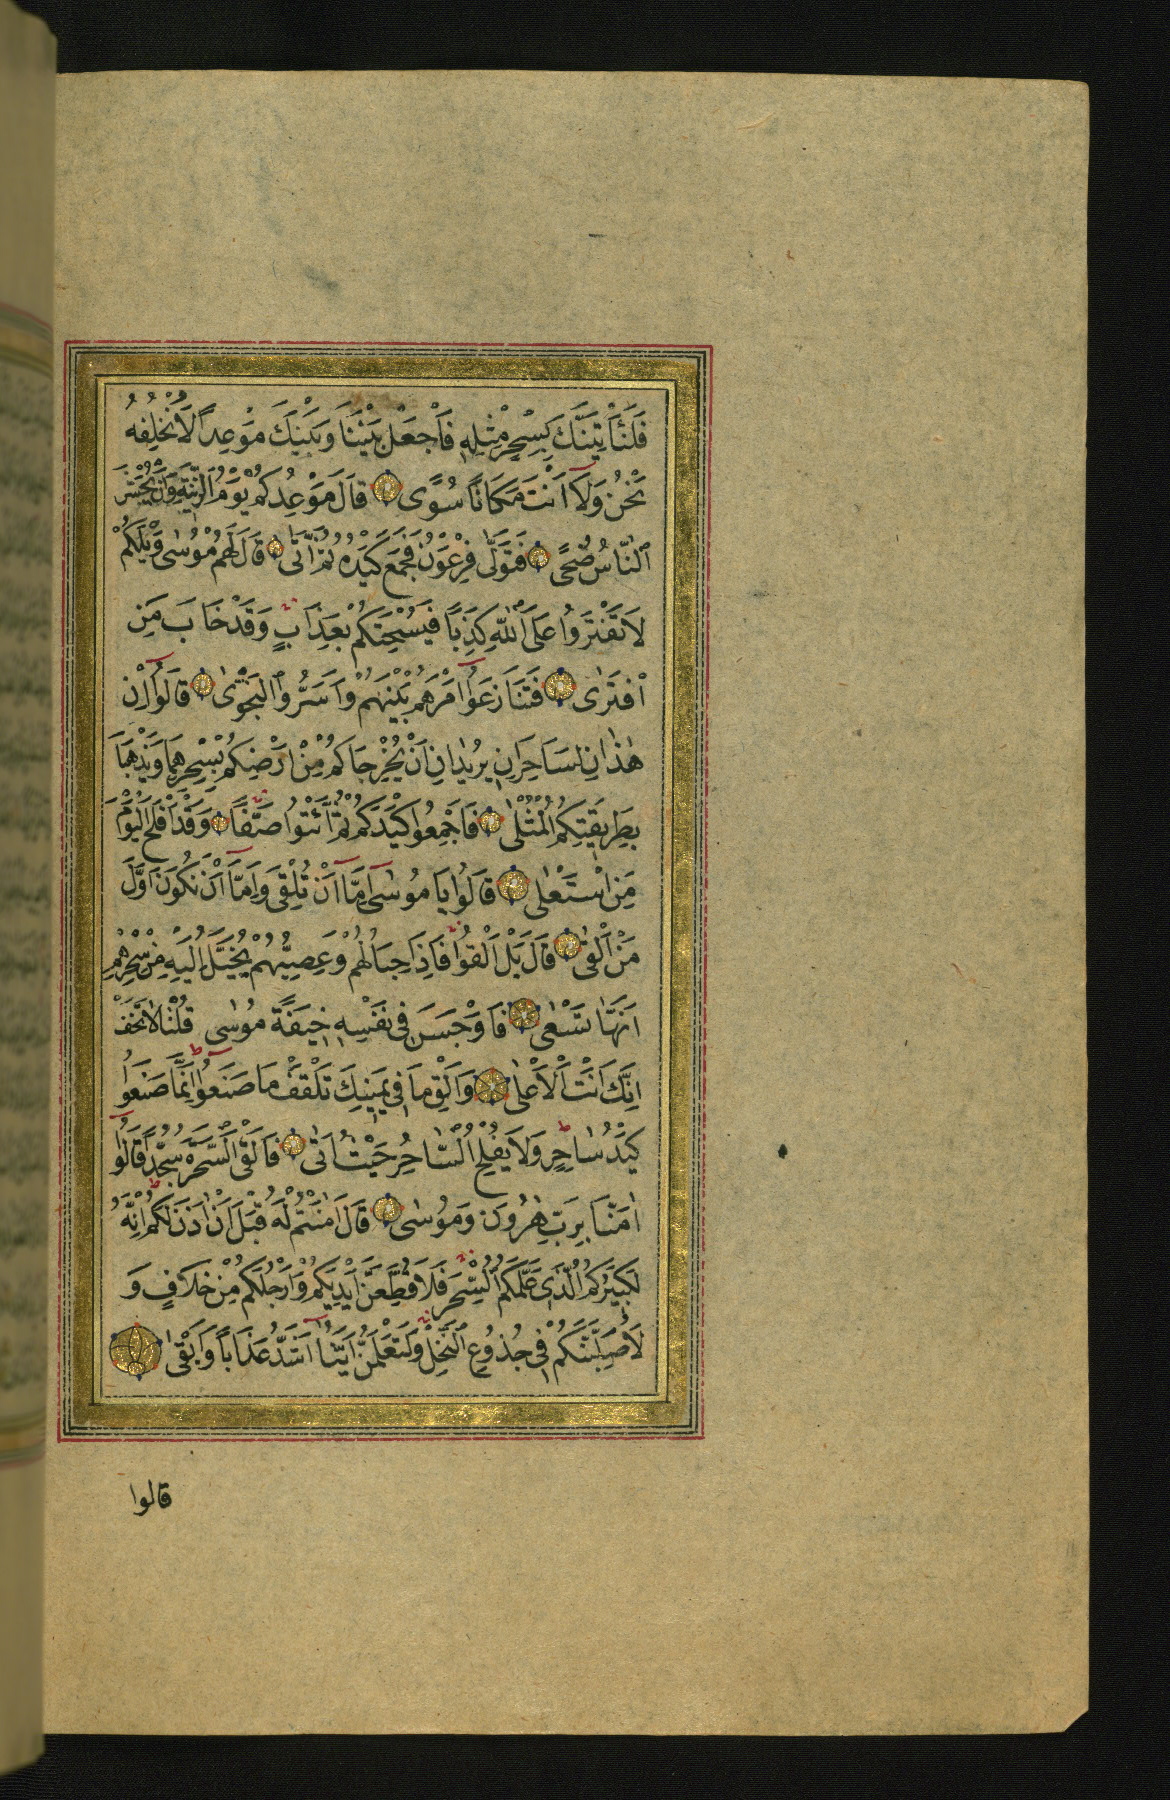 فَلَنَأْتِيَنَّكَ بِسِحْرٍ مِثْلِهِ فَاجْعَلْ بَيْنَنَا وَبَيْنَكَ مَوْعِدًا لَا نُخْلِفُهُ
نَحْنُ وَلَا أَنْتَ مَكَانًا سُوًى قَالَ مَوْعِدُكُمْ يَوْمُ الزِّينَةِ وَأَنْ يُحْشَرَ
النَّاسُ ضُحًى فَتَوَلَّى فِرْعَوْنُ فَجَمَعَ كَيْدَهُ ثُمَّ أَتَى قَالَ لَهُمْ مُوسَى وَيْلَكُمْ
لَا تَفْتَرُوا عَلَى اللّٰهِ كَذِبًا فَيُسْحِتَكُمْ بِعَذَابٍ وَقَدْ خَابَ مَنِ
افْتَرٰى فَتَنَازَعُوا أَمْرَهُمْ بَيْنَهُمْ وَأَسَرُّوا النَّجْوٰى قَالُوا إِنْ
هٰذَانِ لَسَاحِرَانِ يُرِيدَانِ أَنْ يُخْرِجَاكُمْ مِنْ أَرْضِكُمْ بِسِحْرِهِمَا وَيَذْهَبَا
بِطَرِيقَتِكُمُ الْمُثْلٰى فَأَجْمِعُوا كَيْدَكُمْ ثُمَّ ائْتُوا صَفًّا وَقَدْ أَفْلَحَ الْيَوْمَ
مَنِ اسْتَعْلٰى قَالُوا يَا مُوسٰى إِمَّا أَنْ تُلْقِيَ وَإِمَّا أَنْ نَكُونَ أَوَّلَ
مَنْ أَلْقٰى قَالَ بَلْ أَلْقُوا فَإِذَا حِبَالُهُمْ وَعِصِيُّهُمْ يُخَيَّلُ إِلَيْهِ مِنْ سِحْرِهِمْ
أَنَّهَا تَسْعٰى فَأَوْجَسَ فِي نَفْسِهِ خِيفَةً مُوسٰى قُلْنَا لَا تَخَفْ
إِنَّكَ أَنْتَ الْأَعْلٰى وَأَلْقِ مَا فِي يَمِينِكَ تَلْقَفْ مَا صَنَعُوا إِنَّمَا صَنَعُوا
كَيْدُ سَاحِرٍ وَلَا يُفْلِحُ السَّاحِرُ حَيْثُ أَتٰى فَأُلْقِيَ السَّحَرَةُ سُجَّدًا قَالُوا
اٰمَنَّا بِرَبِّ هٰرُونَ وَمُوسٰى قَالَ اٰمَنْتُمْ لَهُ قَبْلَ أَنْ اٰذَنَ لَكُمْ إِنَّهُ
لَكَبِيرُكُمُ الَّذِي عَلَّمَكُمُ السِّحْرَ فَلَأُقَطِّعَنَّ أَيْدِيَكُمْ وَأَرْجُلَكُمْ مِنْ خِلَافٍ وَ
لَأُصَلِّبَنَّكُمْ فِي جُذُوعِ النَّخْلِ وَلَتَعْلَمُنَّ أَيُّنَا أَشَدُّ عَذَابًا وَأَبْقٰى
قالوا